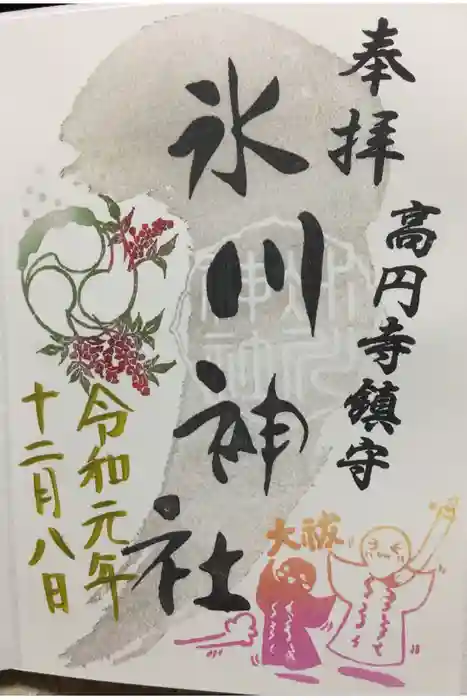 奉拝
高円寺鎮守
氷川神社
令和元年
十二月八日
大祓